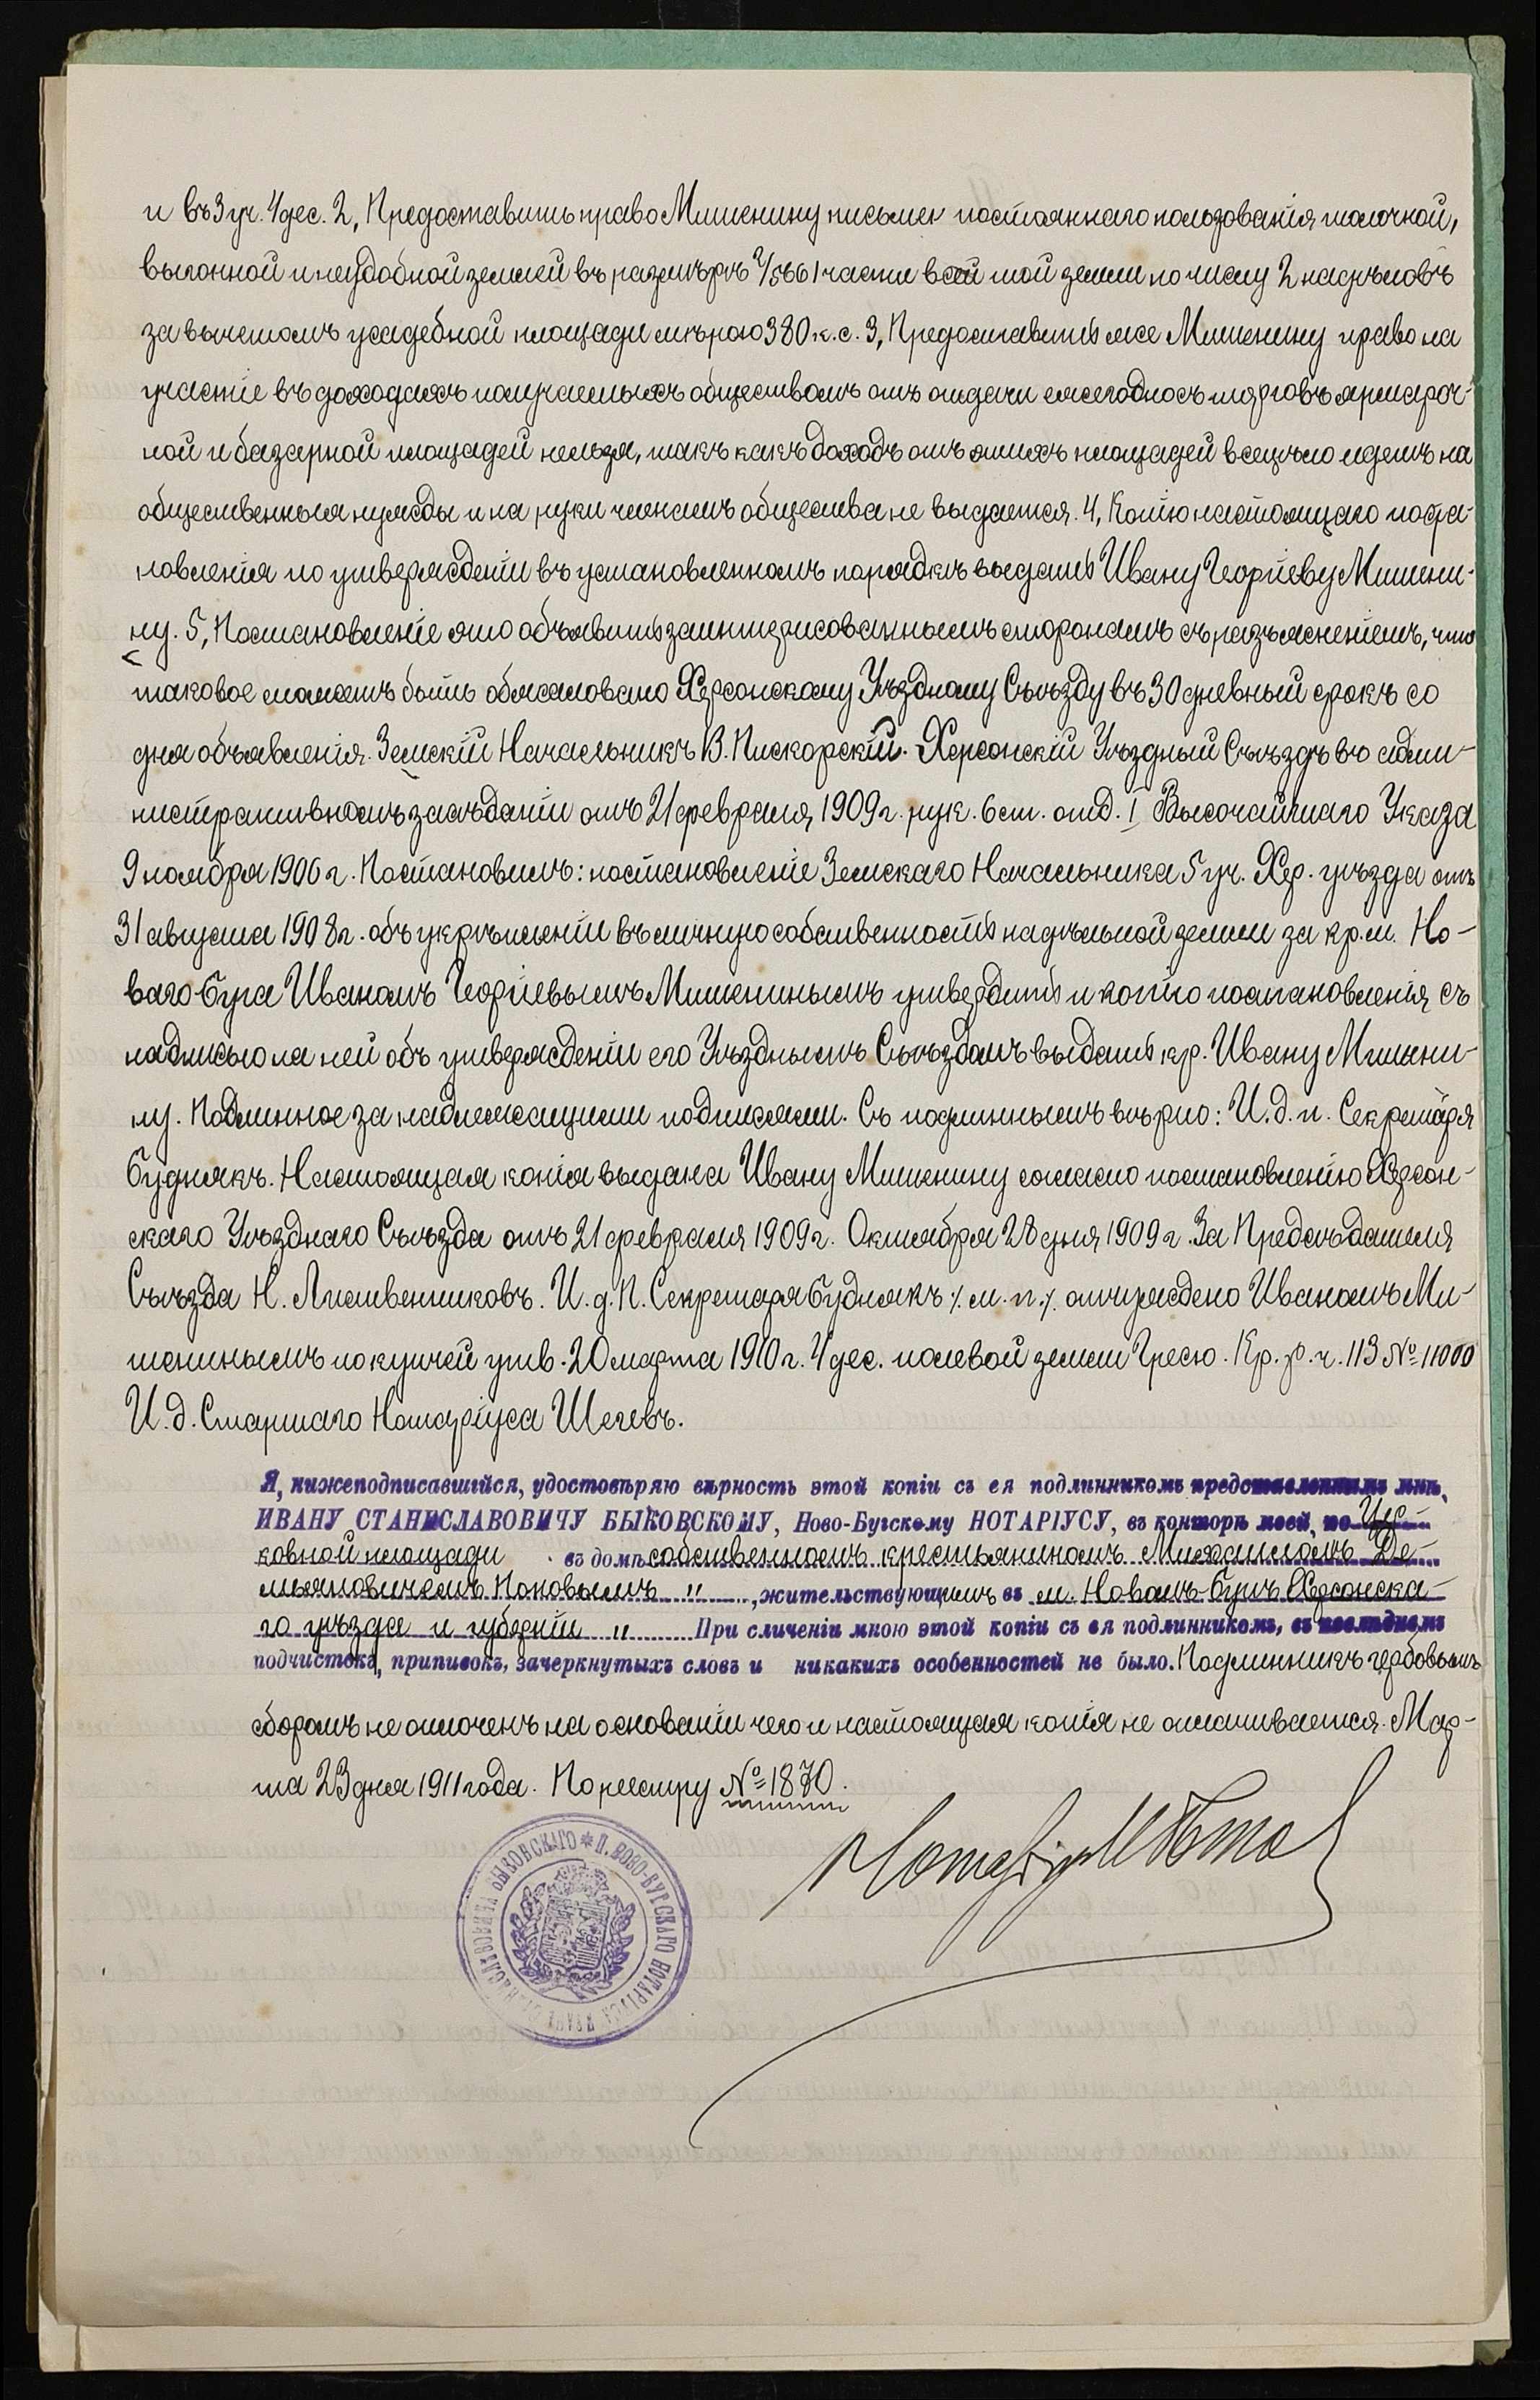 и въ 3 уч. 4 дес. 2, Предоставить право Мишенину письмен постояннаго пользованія толочной,
выгонной и неудобной землей въ размѣрѣ 2/5661 части всей той земли по числу 2 надѣловъ
за вычетомъ усадебной площади мѣрою 380 к. с. 3, Предоставить же Мишенину право на
участіе въ доходахъ получаемыхъ обществомъ отъ отдачи ежегодно съ торговъ ярмароч-
ной и базарной площадей нельзя, такъ какъ доходъ отъ этихъ площадей всецѣло идетъ на
общественныя нужды и на руки членамъ общества не выдается. 4, Копію настоящаго поста-
новленія по утвержденіи въ установленномъ порядкѣ выдать Ивану Георгіеву Мишени-
ну. 5, Постановленіе это объявить заинтерисованнымъ сторонамъ съ разъясненіемъ, что
таковое можетъ быть обжаловано Херсонскому Уѣздному Съѣзду въ 30 дневный срокъ со
дня объявленія. Земскій Начальникъ В. Пискорскій. Херсонскій Уѣздный Съѣздъ въ адми-
нистративномъ засѣданіи отъ 21 февраля 1909 г. рук. 6 ст. отд. I Высочайшаго Указа
9 ноября 1906 г. Постановилъ: постановленіе Земскаго Начальника 5 уч. Хер. уѣзда отъ
31 августа 1908 г. объ укрѣпленіи въ личную собственность надѣльной земли за кр. м. Но-
ваго-Буга Иваномъ Георгіевымъ Мишенинымъ утвердить и копію постановленія съ
надписью на ней объ утвержденіи его Уѣзднымъ Съѣздомъ выдать кр. Ивану Мишени-
ну. Подлинное за надлежащими подписями. Съ подлиннымъ вѣрно: И. д. п. Секретаря
Буднякъ. Настоящая копія выдана Ивану Мишенину согласно постановленію Херсон-
скаго Уѣзднаго Съѣзда отъ 21 февраля 1909 г. Октября 28 дня 1909 г. За Предсѣдателя
Съѣзда Н. Листвениковъ. И. д. П. Секретаря Буднякъ ⁒ м. п. ⁒ отчуждено Иваномъ Ми-
шенинымъ по купчей утв. 20 марта 1910 г. 4 дес. полевой земли Кр. р. ч. 113 № 11000
И. д. Старшаго Нотаріуса Шегевъ.
Я, нижеподписавшійся, удостовѣряю вѣрность этой копіи съ ея подлинникомъ представленнымъ мнѣ,
ИВАНУ СТАНИСЛАВОВИЧУ БЫКОВСКОМУ, Ново-Бугскому НОТАРІУСУ, въ конторѣ моей, по Цер-
ковной площади въ домѣ собственномъ крестьяниномъ Михаиломъ Де-
мьяновичемъ Поповымъ " , жительствующимъ въ м. Новомъ-Бугѣ Херсонска-
го уѣзда и губерніи " При сличеніи мною этой копіи съ ея подлинникомъ, въ послѣднемъ
подчистокъ, приписокъ, зачеркнутыхъ словъ и никакихъ особенностей не было. Подлинникъ гербовымъ
сборомъ не оплоченъ на основаніи чего и настоящая копія не оплачивается. Мар-
та 23 дня 1911 года. По реестру № 1870.
Нотаріусъ
* П. НОВО-БУГСКАГО НОТАРІУСА ИВАНА СТАНИСЛАВОВИЧА БЫКОВСКАГО